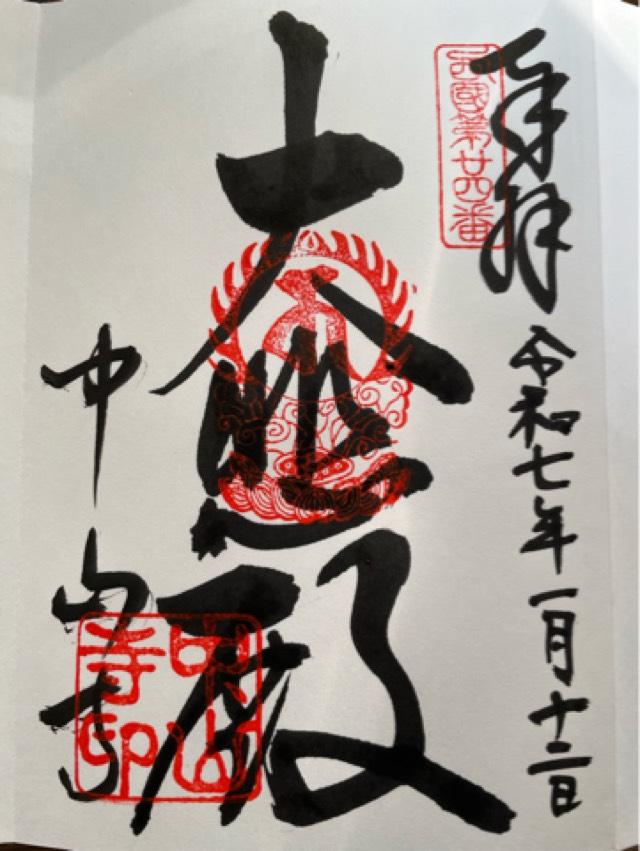 奉拝
西國第廿四番
令和七年一月十二日
大悲殿
中山寺
中山寺印